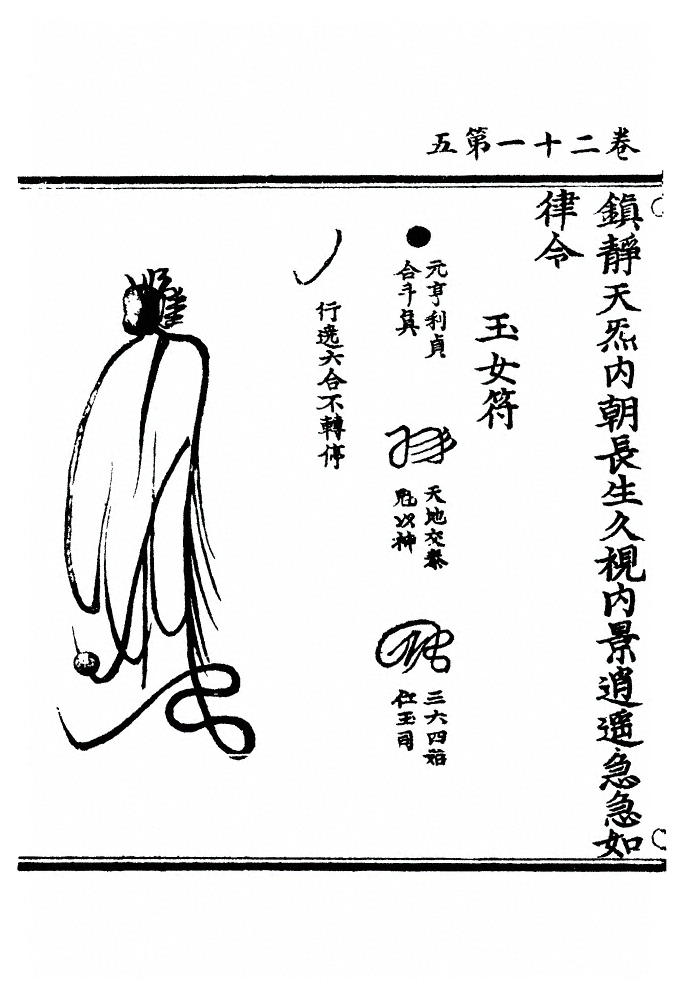 卷二十一第五
鎮靜天炁内朝長生久視内景逍遥急急如
律令
玉女符
元亨利貞
合斗真
天地交泰
魁以神
三六四
仁玉司
行迻六合不轉停